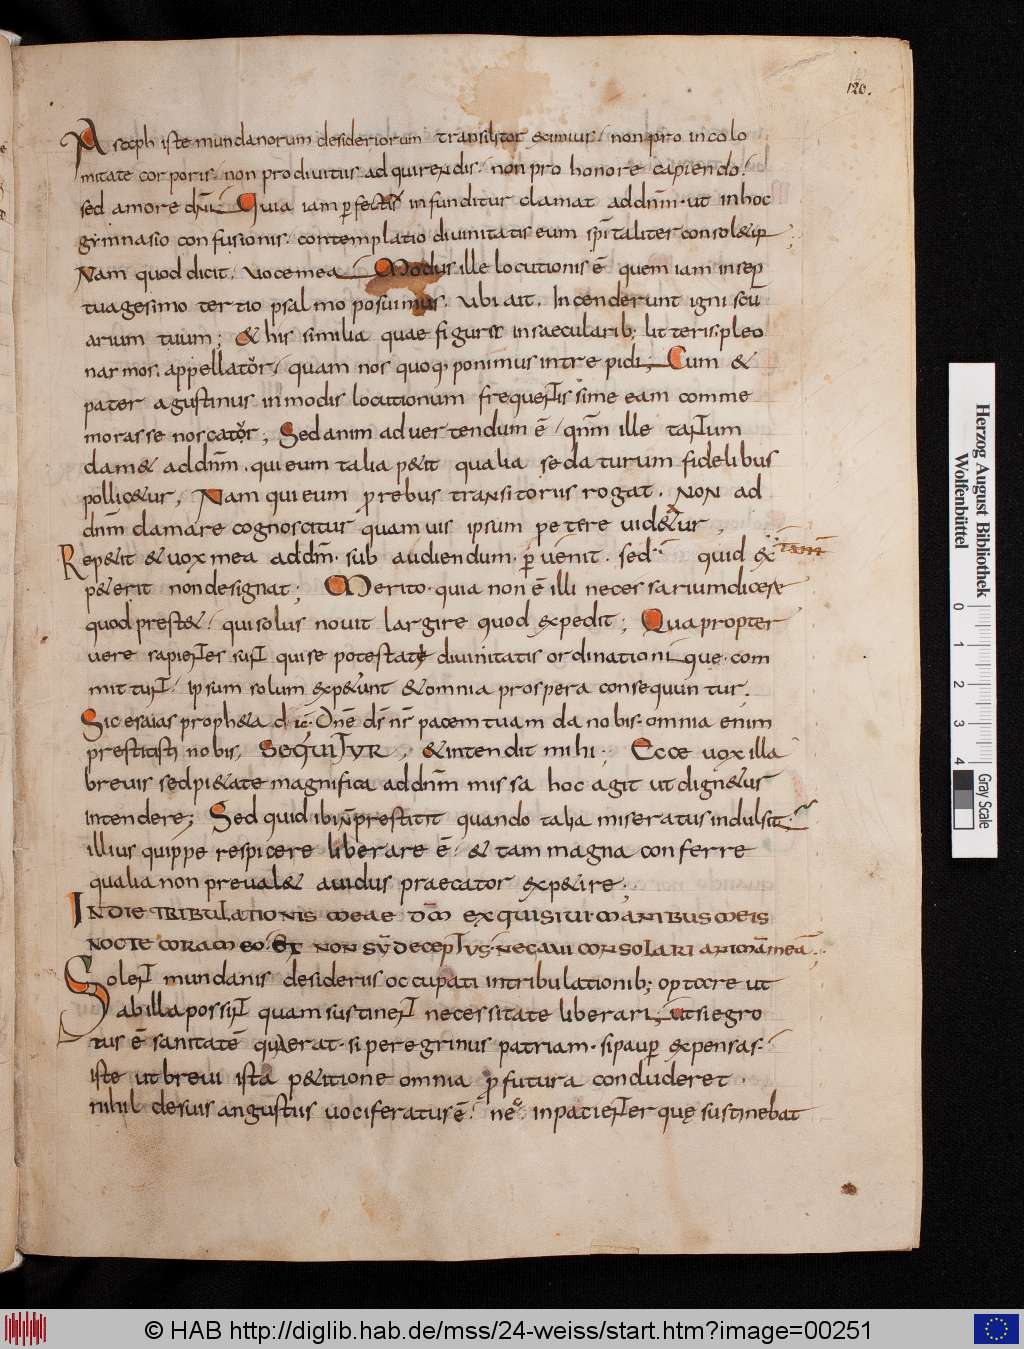 120.
Aseph iste mundanorum desideriorum transilitor eximius, non pro incolo
mitate corporis, non pro divitiis adquirendis, non pro honore capiendo,
sed amore dn̄i. Quia iam perfectis infunditur clamat ad dnm̄. ut in hoc
gymnasio confusionis, contemplatio divinitatis eum sp̄italiter consol&ur
Nam quod dicit, voce mea Modus ille locutionis ē quem iam in sep
tuagesimo tertio psalmo posuimus. ubi ait. Incenderunt igni scu
arium tuum; & his similia quae figura in saecularib; litteris pleo
narmos appellator, quam nos quoq, ponimus intrepidi, Cum &
pater agustinus in modis locutionum frequentissime eam comme
morasse noscator; Sed animadvertendum ē, qnm̄ ille tantum
clam& ad dnm̄. qui eum talia p&it qualia se daturum fidelibus
pollic&ur, Nam qui eum p rebus transitoriis rogat. NON ad
dnm̄ clamare cognoscitur quamvis ipsum petere vid&ur,
Rep&it & vox mea ad dnm̄. sub audiendum. pervenit. sed quid ex
p&erit non designat; Merito. quia non ē illi necessarium dicere
quod prest&, qui solus novit largire quod expedit; Quapropter
vere sapientes sunt qui se potestate divinitatis ordinationique. com
mittunt, ipsum solum exp&unt & omnia prospera consequuntur.
Sic esaias proph&a dic̄. Dn̄e ds̄ nr̄ pacem tuam da nobis. omnia enim
prestitisti nobis, SEQUITUR, & intendit mihi; Ecce vox illa
brevis sed pi&ate magnifica ad dnm̄ missa hoc agit ut dign&us
intendere; Sed quid ibi n̄ prestitit quando talia miseratus indulsit.
illius quippe respicere liberare ē. & tam magna conferre
qualia non preval& avidus praecator exp&ire,
IN DIE TRIBULATIONIS MEAE DM̄ EXQUISIVI MANIBUS MEIS
NOCTE CORAM EO. ET NON SV̄ DECEPTUS. NEGAVI CONSOLARI ANIMĀ MEĀ,
Solent mundanis desideriis occupati in tribulationib; optare ut
ab illa possint quam sustinent necessitate liberari, ut si egro
tus ē sanitatē quaerat. si peregrinus patriam. si pauper expensas.
iste ut brevi ista p&itione omnia pfutura concluderet.
nihil de suis angustiis vociferatus ē. ne inpatienter quę sustinebat
Herzog August Bibliothek
Wolfenbüttel
0 1 2 3 4
Gray Scale
© HAB http://diglib.hab.de/mss/24-weiss/start.htm?image=00251